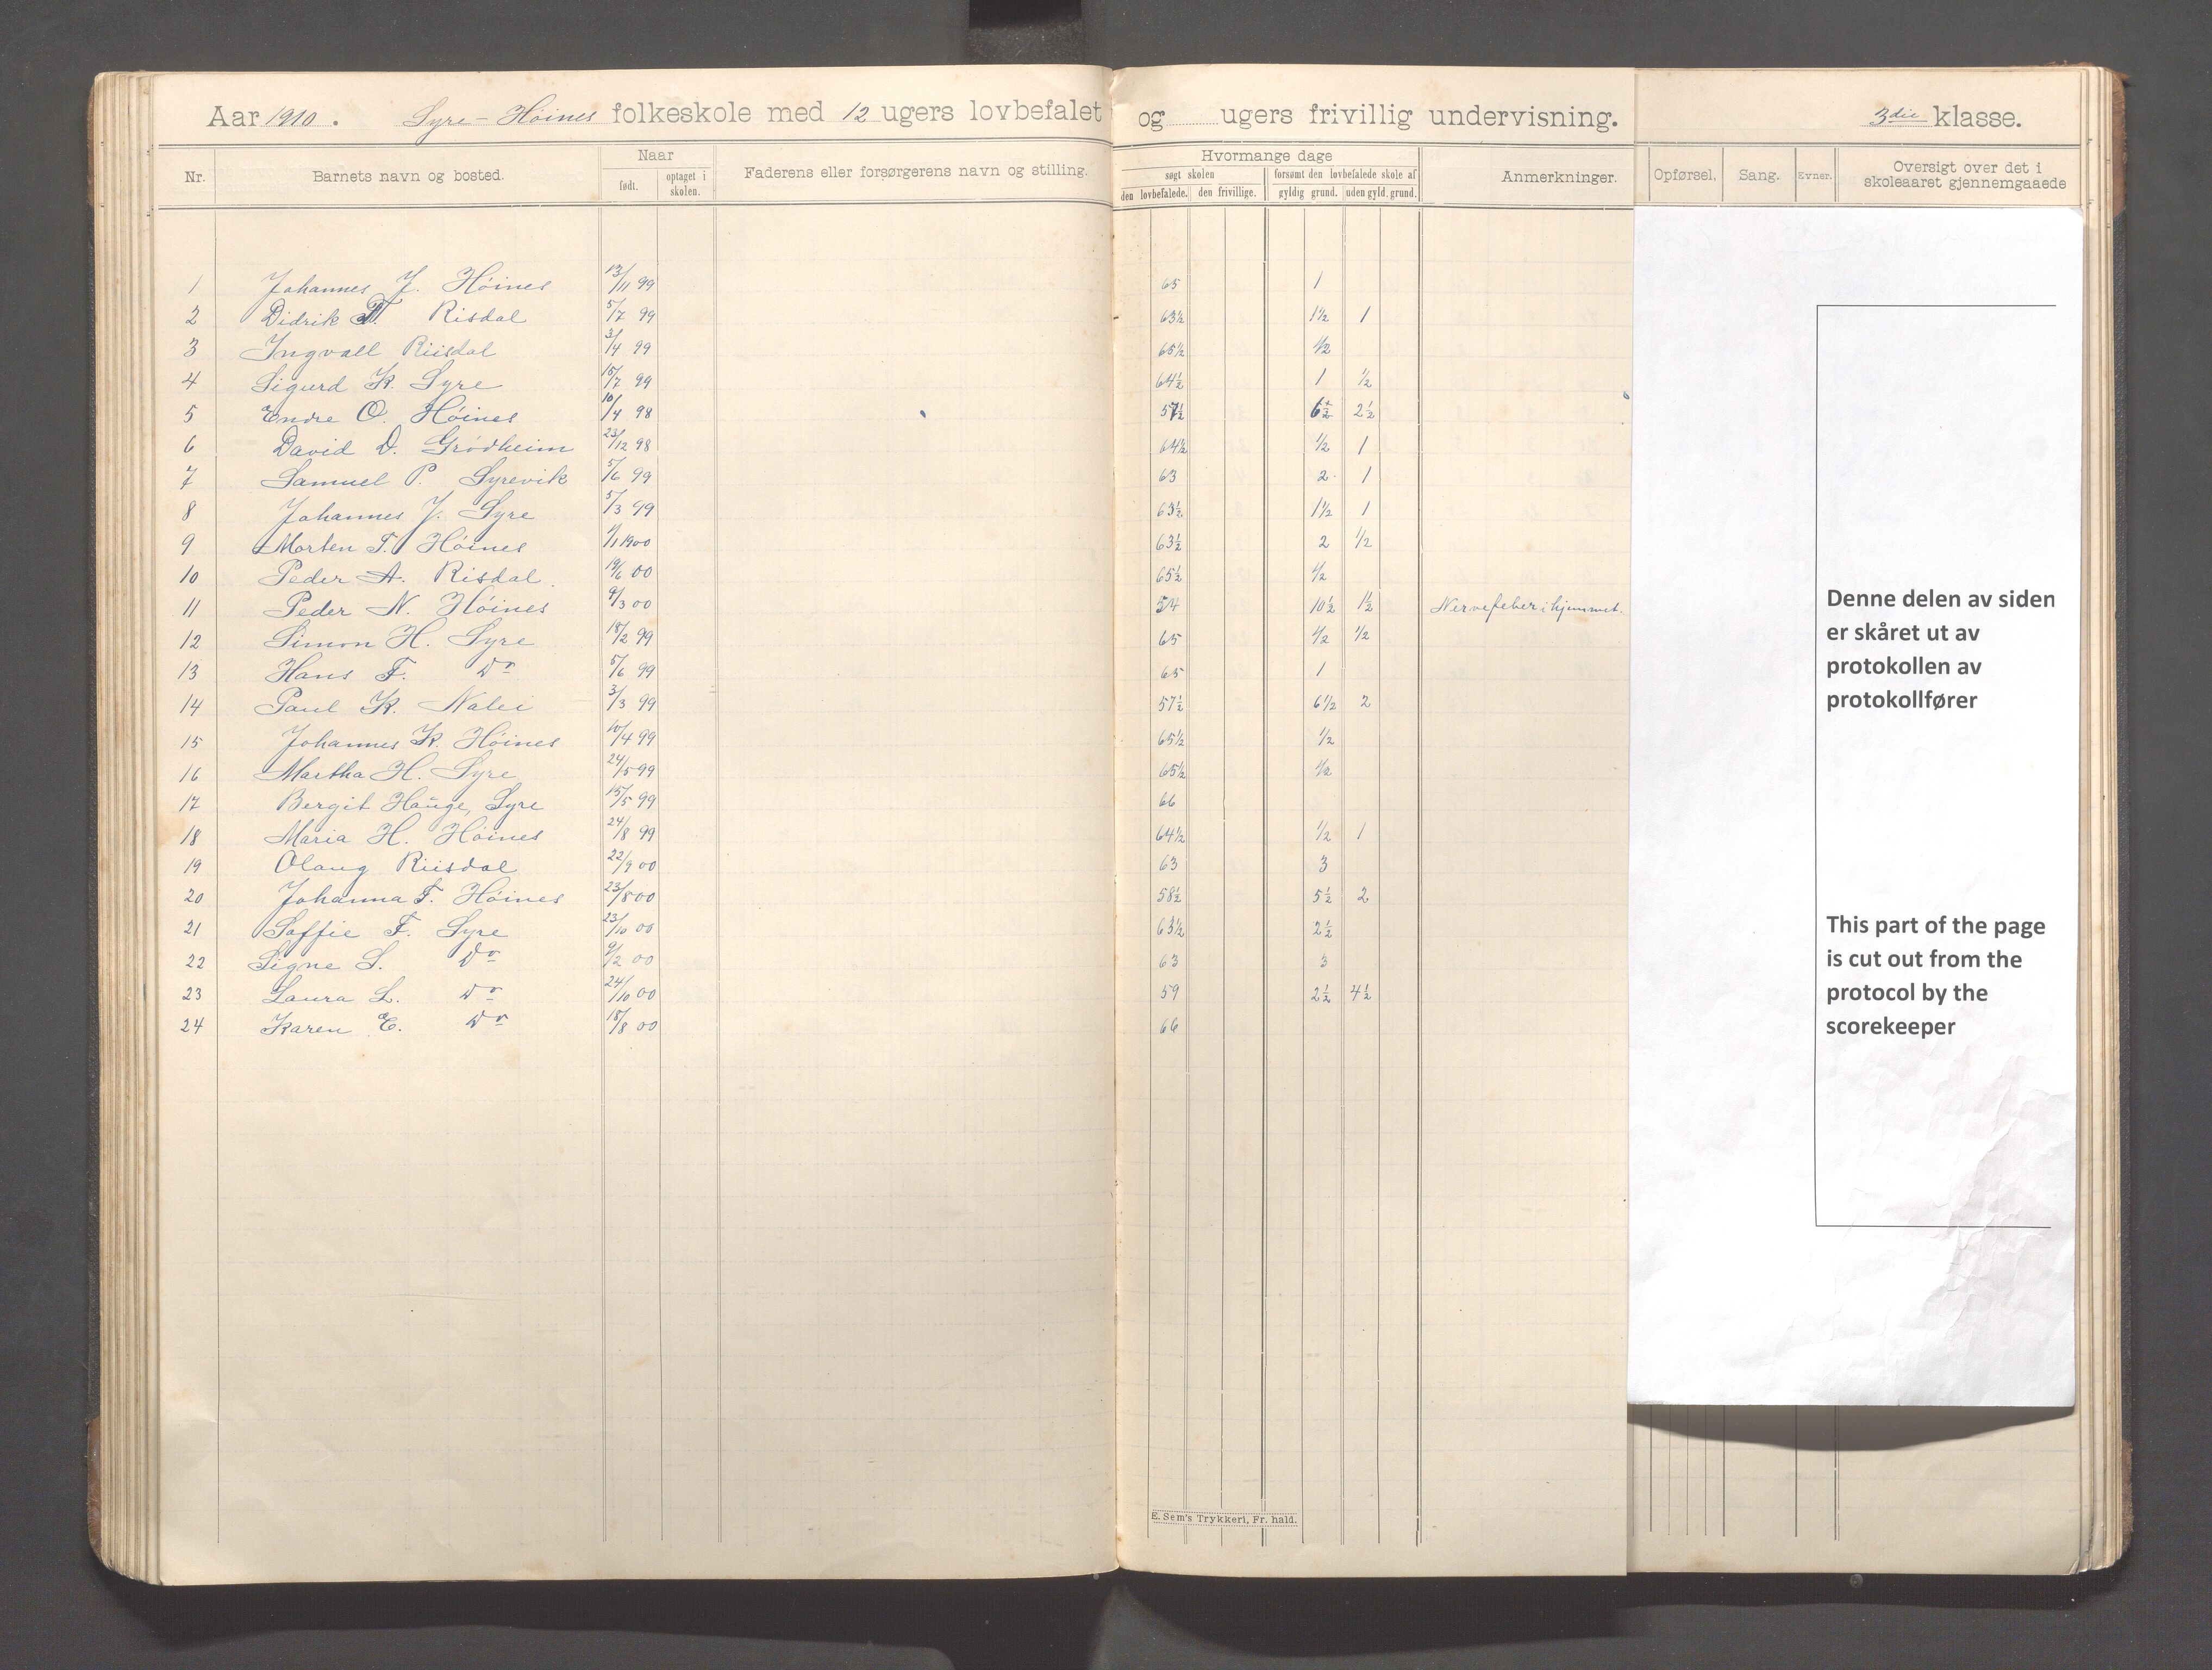 Aar 1910. Syre-Höines folkeskole med 12 ugers lovbefalet og ugers frivillig undervisning. 3die klasse.
Nr. Barnets navn og bosted. Naar født. optaget i skolen. Faderens eller forsørgerens navn og stilling. Hvormange dage søgt skolen den lovbefalede. den frivillige. forsømt den lovbefalede skole af gyldig grund. uden gyld. grund. Anmerkninger. Opførsel. Sang. Evner. Oversigt over det i skoleaaret gjennemgaaede
1 Johannes J. Höines 13/11 99 65 1
2 Didrik T. Risdal 5/7 99 63½ 1½ 1
3 Ingvall Riisdal 3/4 99 65½ ½
4 Sigurd K. Syre 15/7 99 64½ 1 ½
5 Endre O. Höines 10/4 98 57½ 6½ 2½
6 David D. Grödheim 23/12 98 64½ ½ 1
7 Samuel P. Syrevik 5/6 99 63 2 1
8 Johannes J. Syre 5/3 99 63½ 1½ 1
9 Morten T. Höines 1/1 1900 63½ 2 ½
10 Peder A. Risdal. 19/6 00 65½ ½
11 Peder N. Höines 9/3 00 54 10½ 1½ Nervefeber i hjemmet.
12 Simon H. Syre 18/2 99 65 ½ ½
13 Hans F. Do 5/6 99 65 1
14 Paul K. Nalei 3/3 99 57½ 6½ 2
15 Johannes K. Höines 10/4 99 65½ ½
16 Martha H. Syre 24/5 99 65½ ½
17 Bergit Hauge, Syre 15/5 99 66
18 Maria H. Höines 24/8 99 64½ ½ 1
19 Olaug Riisdal 22/9 00 63 3
20 Johanna F. Höines 23/8 00 58½ 5½ 2
21 Soffie F. Syre 23/10 00 63½ 2½
22 Signe S. Do 9/2 00 63 3
23 Laura L. Do 24/10 00 59 2½ 4½
24 Karen E. Do 18/8 00 66
E. Sem's Trykkeri, Fr. hald.
Denne delen av siden
er skåret ut av
protokollen av
protokollfører
This part of the page
is cut out from the
protocol by the
scorekeeper